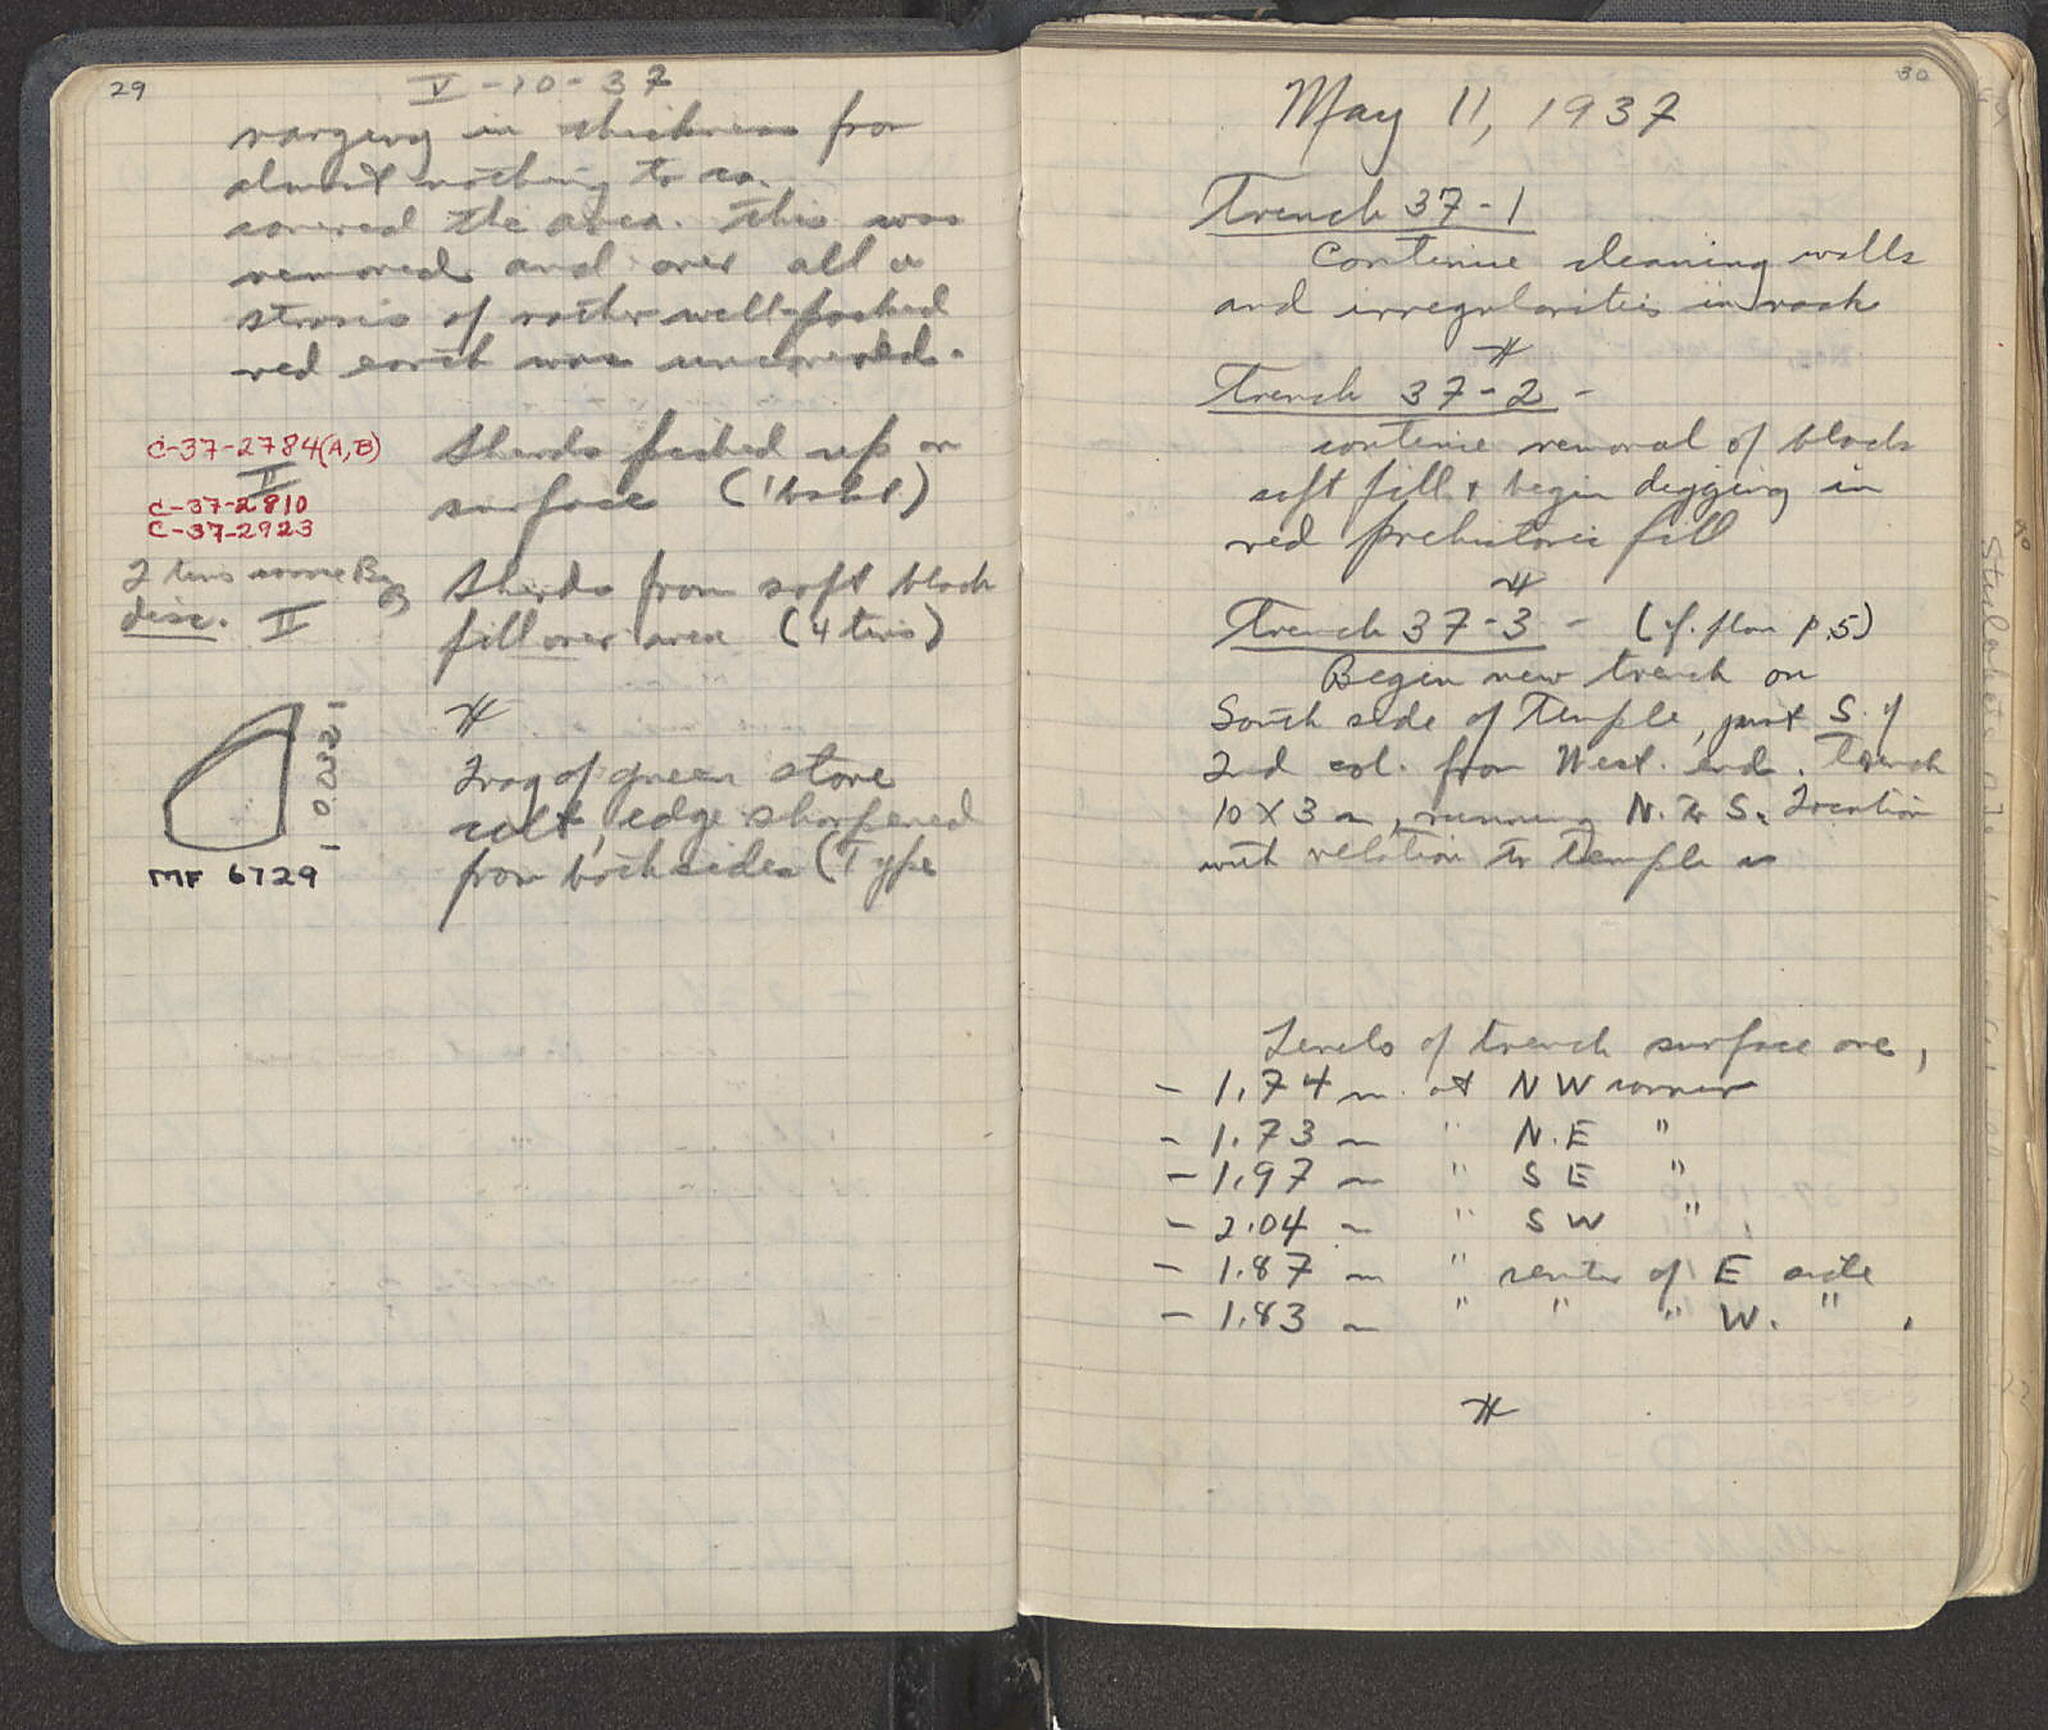 29
V-10-37
varying in thickness from
almost nothing to ca.
covered the area. This was
removed and over all a
strosis of rather well-packed
red earth was uncovered.
C-37-2784(A,B)
II
C-37-2810
C-37-2923
Sherds picked up on
surface (1 basket)
2 tins some
disc. II
Sherds from soft black
fill over area (4 tins)
0.0225
MF 6729
Frag of green stone
celt, edge sharpened
from both sides (Type
30
May 11, 1937
Trench 37-1
Continue cleaning walls
and irregularities in rock
Trench 37-2 -
continue removal of black
soft fill + begin digging in
red prehistoric fill
Trench 37-3 - (cf. plan p.5)
Begin new trench on
South side of Temple, just S. of
2nd col. from West. end. Trench
10 X 3 m, running N. to S. Location
with relation to temple is
Levels of trench surface are,
- 1.74 m. at NW corner
- 1.73 m " N.E "
- 1.97 m " S E "
- 2.04 m " S W " .
- 1.87 m " center of E side
- 1.83 m " " " W. " .